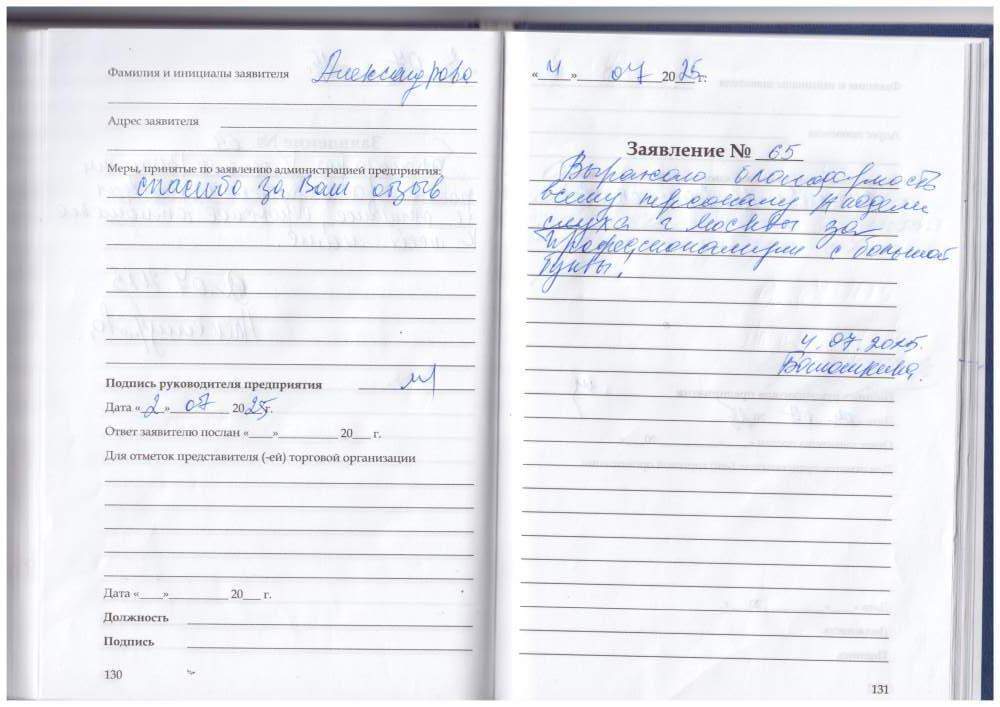 Фамилия и инициалы заявителя Александрова
Адрес заявителя
Меры, принятые по заявлению администрацией предприятия:
Спасибо за Ваш отзыв
Подпись руководителя предприятия
Дата «2» 07 2025г.
Ответ заявителю послан «____»__________ 20___ г.
Для отметок представителя (-ей) торговой организации
Дата «____»__________ 20___ г.
Должность
Подпись
130
«4» 07 2025 г.
Заявление № 65
Выражаю благодарность
всему персоналу Академии
слуха г Москвы за
профессионализм с большой
буквы!
4.07.2025.
131